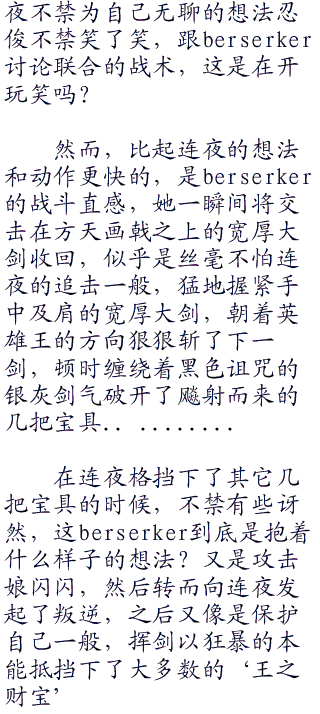 夜不禁为自己无聊的想法忍
俊不禁笑了笑，跟berserker
讨论联合的战术，这是在开
玩笑吗？
然而，比起连夜的想法
和动作更快的，是berserker
的战斗直感，她一瞬间将交
击在方天画戟之上的宽厚大
剑收回，似乎是丝毫不怕连
夜的追击一般，猛地握紧手
中及肩的宽厚大剑，朝着英
雄王的方向狠狠斩了下一
剑，顿时缠绕着黑色诅咒的
银灰剑气破开了飚射而来的
几把宝具．．．．．．．．．．
在连夜格挡下了其它几
把宝具的时候，不禁有些讶
然，这berserker到底是抱着
什么样子的想法？又是攻击
娘闪闪，然后转而向连夜发
起了叛逆，之后又像是保护
自己一般，挥剑以狂暴的本
能抵挡下了大多数的‘王之
财宝’